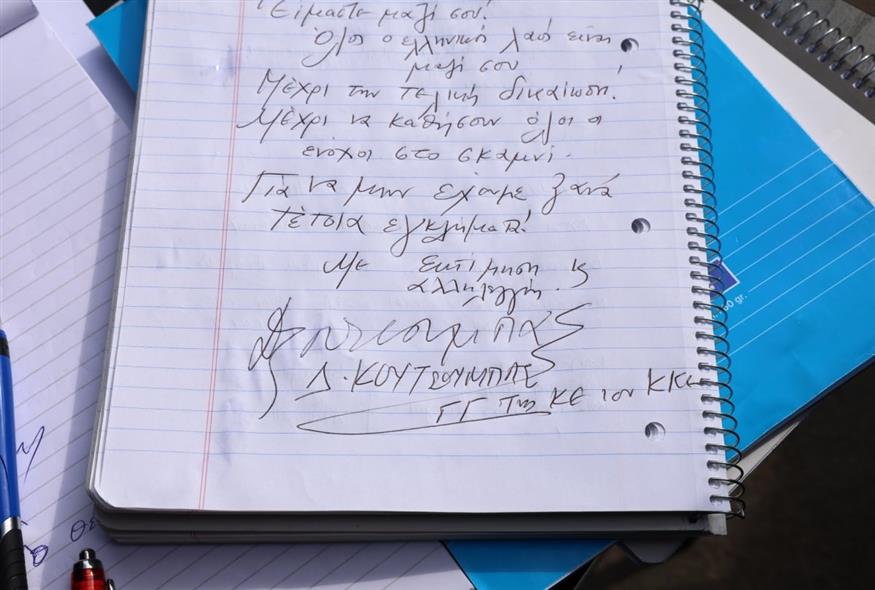 Είμαστε μαζί σου!
Όλος ο ελληνικό λαό είναι
μαζί σου
Μέχρι την τελική δικαίωση!
Μέχρι να καθήσουν όλοι οι
ένοχοι στο σκαμνί.
Για να μην έχουμε ξανά
τέτοια εγκλήματα!
Με εκτίμηση κ
αλληλεγγύη.
Δ. ΚΟΥΤΣΟΥΜΠΑΣ
ΓΓ της ΚΕ του ΚΚΕ
80 gr.